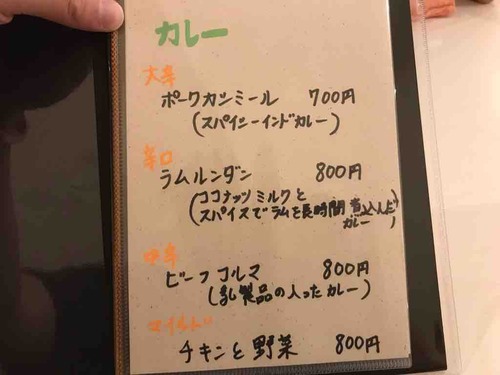 カレー
大辛
ポークカシミール 700円
(スパイシーインドカレー)
辛口
ラムルンダン 800円
(ココナッツミルクと
スパイスでラムを長時間煮込んだ
カレー)
中辛
ビーフコルマ 800円
(乳製品の入ったカレー)
マイルド
チキンと野菜 800円